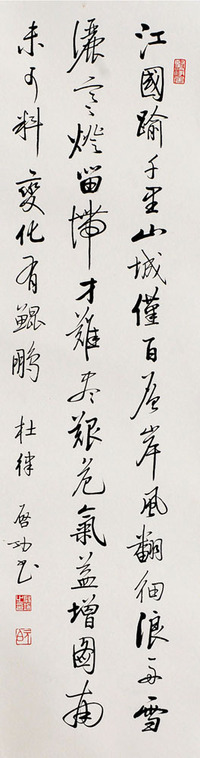 江國踰千里山城僅百層岸風翻浪舟雪
灑寒燈留滯才難盡艱危氣益增圖南
未可料變化有鯤鵬 杜律 啓功書